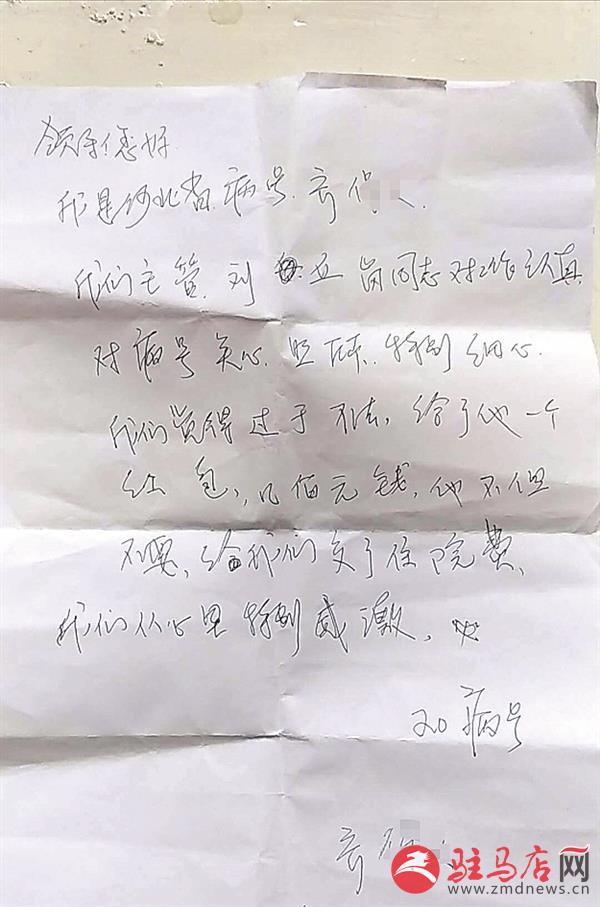 领导您好
我是河北省.病号.齐
我们主管.刘 亚 同志对工作认真.
对病号关心.照顾.特别细心.
我们觉得过于不去,给了他一个
红包,几佰元钱,他不但
不要,给我们交了住院费,
我们从心里特别感激,
20病号
齐
驻马店网
www.zmdnews.cn